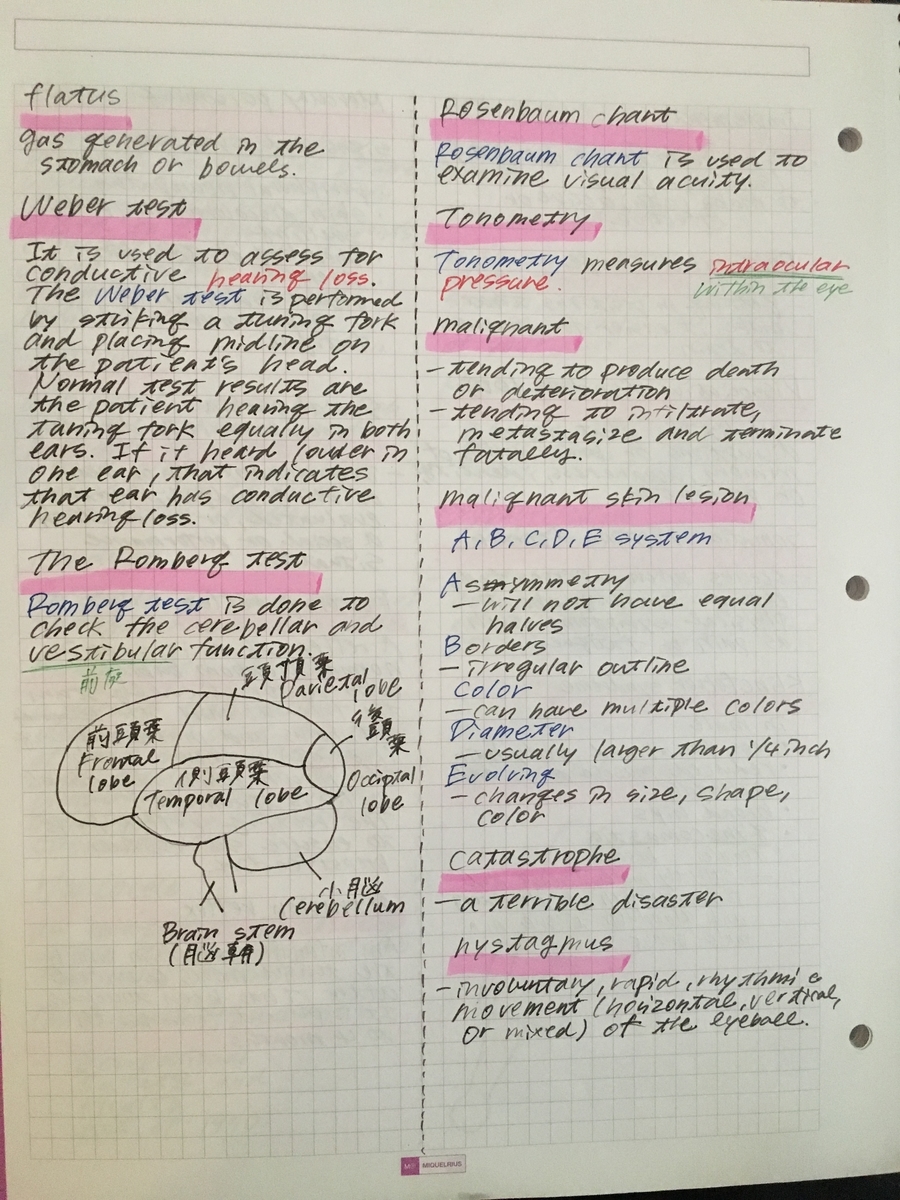 flatus
gas generated in the
stomach or bowels.
Weber test
It is used to assess for
conductive hearing loss.
The Weber test is performed
by striking a tuning fork
and placing midline on
the patient's head.
Normal test results are
the patient hearing the
tuning fork equally in both
ears. If it heard louder in
one ear, that indicates
that ear has conductive
hearing loss.
The Romberg test
Romberg test is done to
check the cerebellar and
vestibular function.
前庭
頭頂葉
Parietal
lobe
前頭葉
Frontal
lobe
後頭葉
Occiptal
lobe
側頭葉
Temporal lobe
小脳
Cerebellum
Brain stem
(脳幹)
Rosenbaum chart
Rosenbaum chart is used to
examine visual acuity.
Tonometry
Tonometry measures intraocular
pressure.
within the eye
malignant
- tending to produce death
or deterioration
- tending to infiltrate,
metastasize and terminate
fatally.
malignant skin lesion
A, B, C, D, E system
Asymmetry
- will not have equal
halves
Borders
- irregular outline
Color
- can have multiple colors
Diameter
- usually larger than 1/4 inch
Evolving
- changes in size, shape,
color
catastrophe
- a terrible disaster
nystagmus
- involuntary, rapid, rhythmic
movement (horizontal, vertical,
or mixed) of the eyeball.
MIQUELRIUS